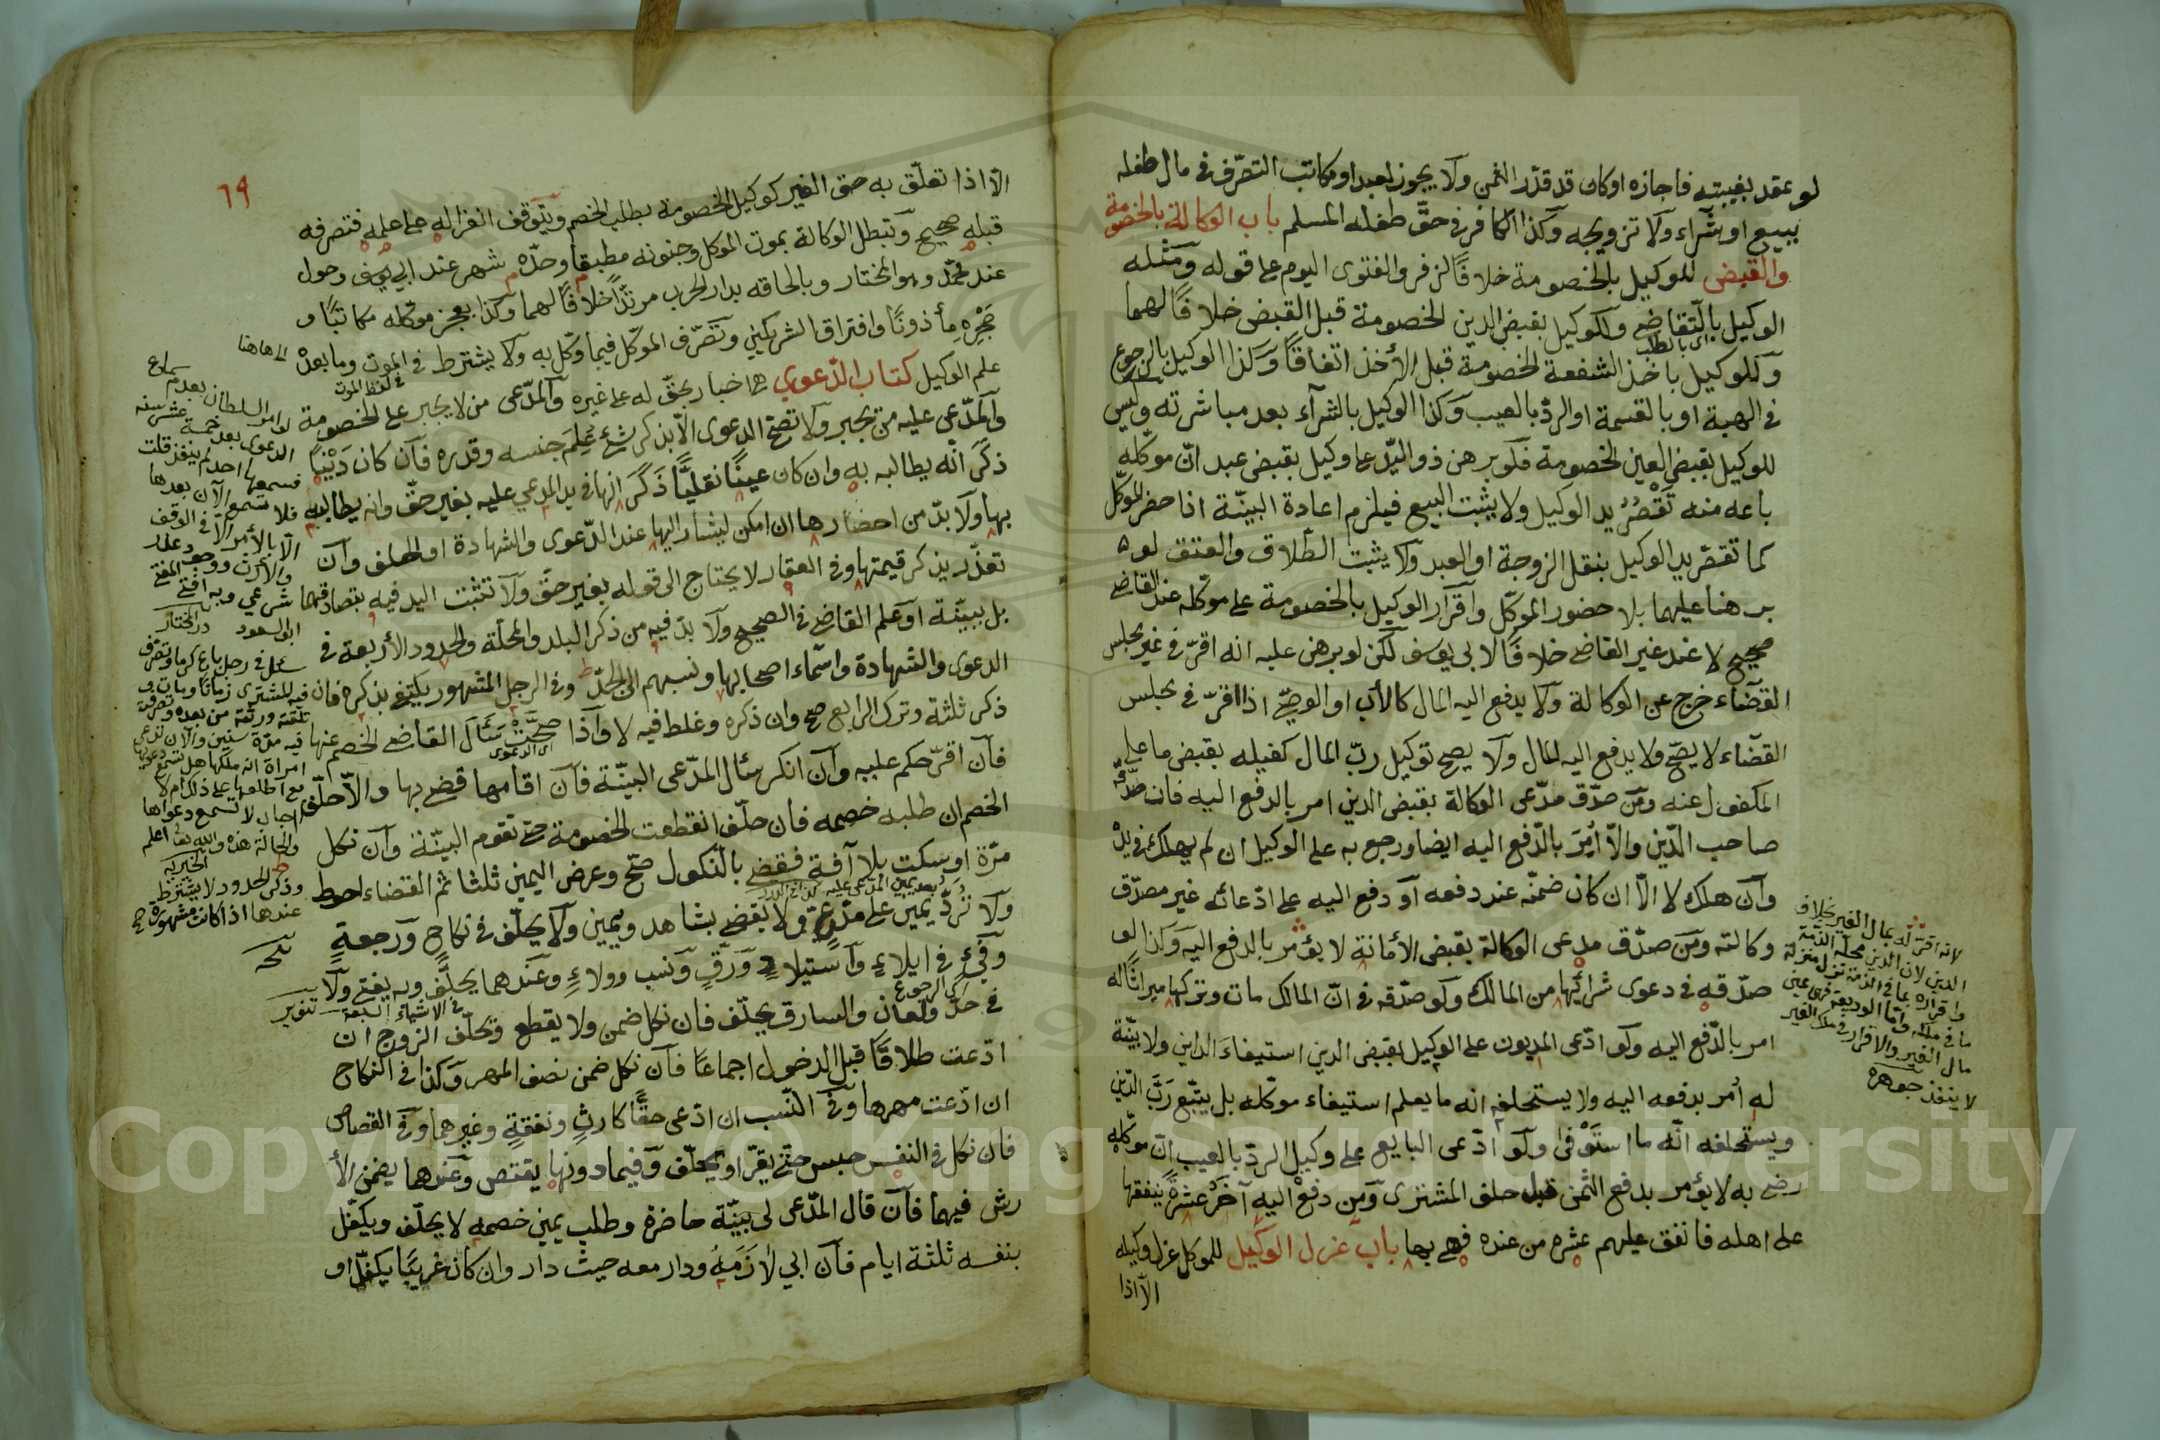 لو عقد بغيبته فاجازه او كان قد قدّر الثمن ولا يجوز لعبد او مكاتب التصرّف في مال طفله
ببيع او شراء ولا تزويجه وكذا الكافر في حقّ طفله المسلم باب الوكالة بالخصومة
والقبض للوكيل بالخصومة خلافًا لزفر والفتوى اليوم على قوله ومثله
الوكيل بالتّقاضي وللوكيل بقبض الدين الخصومة قبل القبض خلافًا لهما
اي بالطلب
وللوكيل باخذ الشفعة الخصومة قبل الأخذ اتفاقًا وكذا الوكيل بالرجوع
في الهبة او بالقسمة او الردّ بالعيب وكذا الوكيل بالشرآء بعد مباشرته وليس
للوكيل بقبض العين الخصومة فلو برهن ذو اليّد على وكيل بقبض عبد انّ موكّله
باعه منه تقصُرُ يد الوكيل ولا يثبت البيع فيلزم اعادة البيّنة اذا حضر الموكّل
كما تقصّر يد الوكيل بنقل الزوجة او العبد ولا يثبت الطّلاق والعتق لو
برهنا عليهما بلا حضور الموكّل واقرار الوكيل بالخصومة على موكّله عند القاضي
صحيح لا عند غير القاضي خلافًا لابي يوسف لكن لو برهن عليه انه اقرّ في غير مجلس
القضآء خرج عن الوكالة ولا يدفع اليه المال كالأب او الوصيّ اذا اقرّ في مجلس
القضآء لا يصّح ولا يدفع اليه المال ولا يصح توكيل ربّ المال كفيله بقبض ما على
المكفول عنه ومن صدّق مدّعى الوكالة بقبض الدين امر بالدفع اليه فان صدّقه
صاحب الدّين والّا اُمِرَ بالدّفع اليه ايضا ورجع به على الوكيل ان لم يهلك في يده
وان هلك لا الّا ان كان ضمنّه عند دفعه او دفع اليه على ادّعائه غير مصدّق
وكالته ومن صدّق مدعى الوكالة بقبض الأمانة لا يؤمر بالدفع اليه وكذا لو
صدّقه في دعوى شرائها من المالك ولو صدّقه في انّ المالك مات وتركها ميراثًا له
امر بالدّفع اليه ولو ادّعى المديون على الوكيل بقبض الدين استيفاءَ الداين ولا بيّنة
له اُمر بدفعه اليه ولا يستحلفه انه ما يعلم استيفاء موكّله بل يتّبع رَبَّ الدّين
ويستحلفه انّه ما استَوْفى ولو ادّعى البايع على وكيل الردّ بالعيب انّ موكّله
رضي به لا يؤمر بدفع الثمن قبل حلف المشترى ومن دفع اليه آخَرُ عشرةً ينفقها
على اهله فانفق عليهم عشرة من عنده فهي بها باب عزل الوكيل للموكل عزل وكيله
الّا اذا
لانه اقرّ له بمال الغير بخلاف
الدين لان الدين محله الذمّة
واقراره بما في الذمة تنزل منزلة
ما في ملكه وامّا الوديعة فهى عين
مال الغير والاقرار في ملك الغير
لا ينفذ جوهره
٦٩
الّا اذا تعلّق به حق الغير كوكيل الخصومة بطلب الخصم ويتوقف انعزاله على علمه فتصرفه
قبله صحيح وتبطل الوكالة بموت الموكل وجنونه مطبقا وحدّه شهر عند ابي يوسف وحول
عند محمّد وهو المختار وبالحاقه بدار الحرب مرتدًّا خلافًا لهما وكذا بعجز موكّله مكاتبًا و
حَجْرِهِ مأذونًا وافتراق الشريكين وتصّرف الموكّل فيما وكّل به ولا يشترط في الموت وما بعده
علم الوكيل كتاب الدّعوى هي اخبار بحقّ له على غيره والمدّعى من لا يجبر على الخصومة
والمدّعى عليه من يجبر ولا تصّح الدعوى الّا بذكر شيء عُلِمَ جنسه وقدره فان كان دَيْنًا
ذكر انّه يطالبه به وان كان عينًا نقليًّا ذكر انّها في يد المدعى عليه بغير حقّ وانه يطالبه
بها ولا بدّ من احضارها ان امكن ليشار اليها عند الدّعوى والشهادة او الحلف وان
تعذّر يذكر قيمتها وفي العقار لا يحتاج الى قوله بغير حقّ ولا تثبت اليد فيه بتصادقهما
بل ببيّنة او علم القاضي في الصحيح ولا بدّ فيه من ذكر البلد والمحلّة والحدود الأربعة في
الدعوى والشهادة واسماء اصحابها ونسبهم الى الجدّ وفي الرجل المشهور يكتفى بذكره فان
ذكر ثلثة وترك الرابع صح وان ذكره وغلط فيه لا واذا صحّت سَئَل القاضي الخصم عنها
اى الدعوى
فان اقرّ حكم عليه وان انكر سئال المدّعى البيّنة فان اقامها قضى بها والّا حلّف
الخصم ان طلبه خصمه فان حلّف انقطعت الخصومة حتّى تقوم البيّنة وان نكل
مرّة او سكت بلا آفة فقضى بالنكول صّح وعرض اليمين ثلثا ثم القضاء احوط
ولا تُردّ يمين على مدّعٍ ولا يقضى بشاهد ويمين ولا يحلّف في نكاح ورجعةٍ
وفيءٍ في ايلاءٍ واستيلادٍ ورقٍّ ونسب وولاءٍ وعندهما يحلَّف وبه يفتى ولا
اى الرجوع
في الاشياء السبعة تنوير
في حدّ ولعان والسارق يحلّف فان نكل ضمن ولا يقطع ويحلّف الزوج ان
ادّعت طلاقًا قبل الدخول اجماعًا فان نكل ضمن نصف المهر وكذا في النكاح
ان ادّعت مهرها وفى النّسب ان ادّعى حقًّا كارثٍ ونفقةٍ وغيرهما وفي القصاص
فان نكل في النفس حبس حتّى يقرّ او يحلّف وفيما دونها يقتص وعندهما يضمن الأ
رش فيهما فان قال المدّعى لى بيّنة حاضرة وطلب يمين خصمه لا يحلّف ويكفّل
بنفسه ثلثة ايام فان ابى لازَمَهُ ودار معه حيث دار وان كان غريبًا يكفّل او
الى هاهنا
لو امر السلطان بعدم سماع
الدعوى بعد خمسة عشر سنه
فسمعها احد لم ينفذ قلت
فلا تسمع الآن بعدها
الّا بالأمر الّا في الوقف
والارث ووجود عذر
شرعي وبه افتى المفتى
ابو السعود در المختار
سئل في رجل باع كرما وتصرّف
فيه المشترى زمانًا ومات و
تلقته ورثته من بعده وتصرفت
فيه مدّة سنين والآن تدعى
امراة انه ملكها هل تسمع دعويها
مع اطلاعها على ذلك ام لا
اجاب لا تسمع دعواها
والحالة هذه والله تعالى اعلم
الخيريه
وذكر الحدود لا يشترط
عندهما اذا كانت مشهورة
Copyright © King Saud University